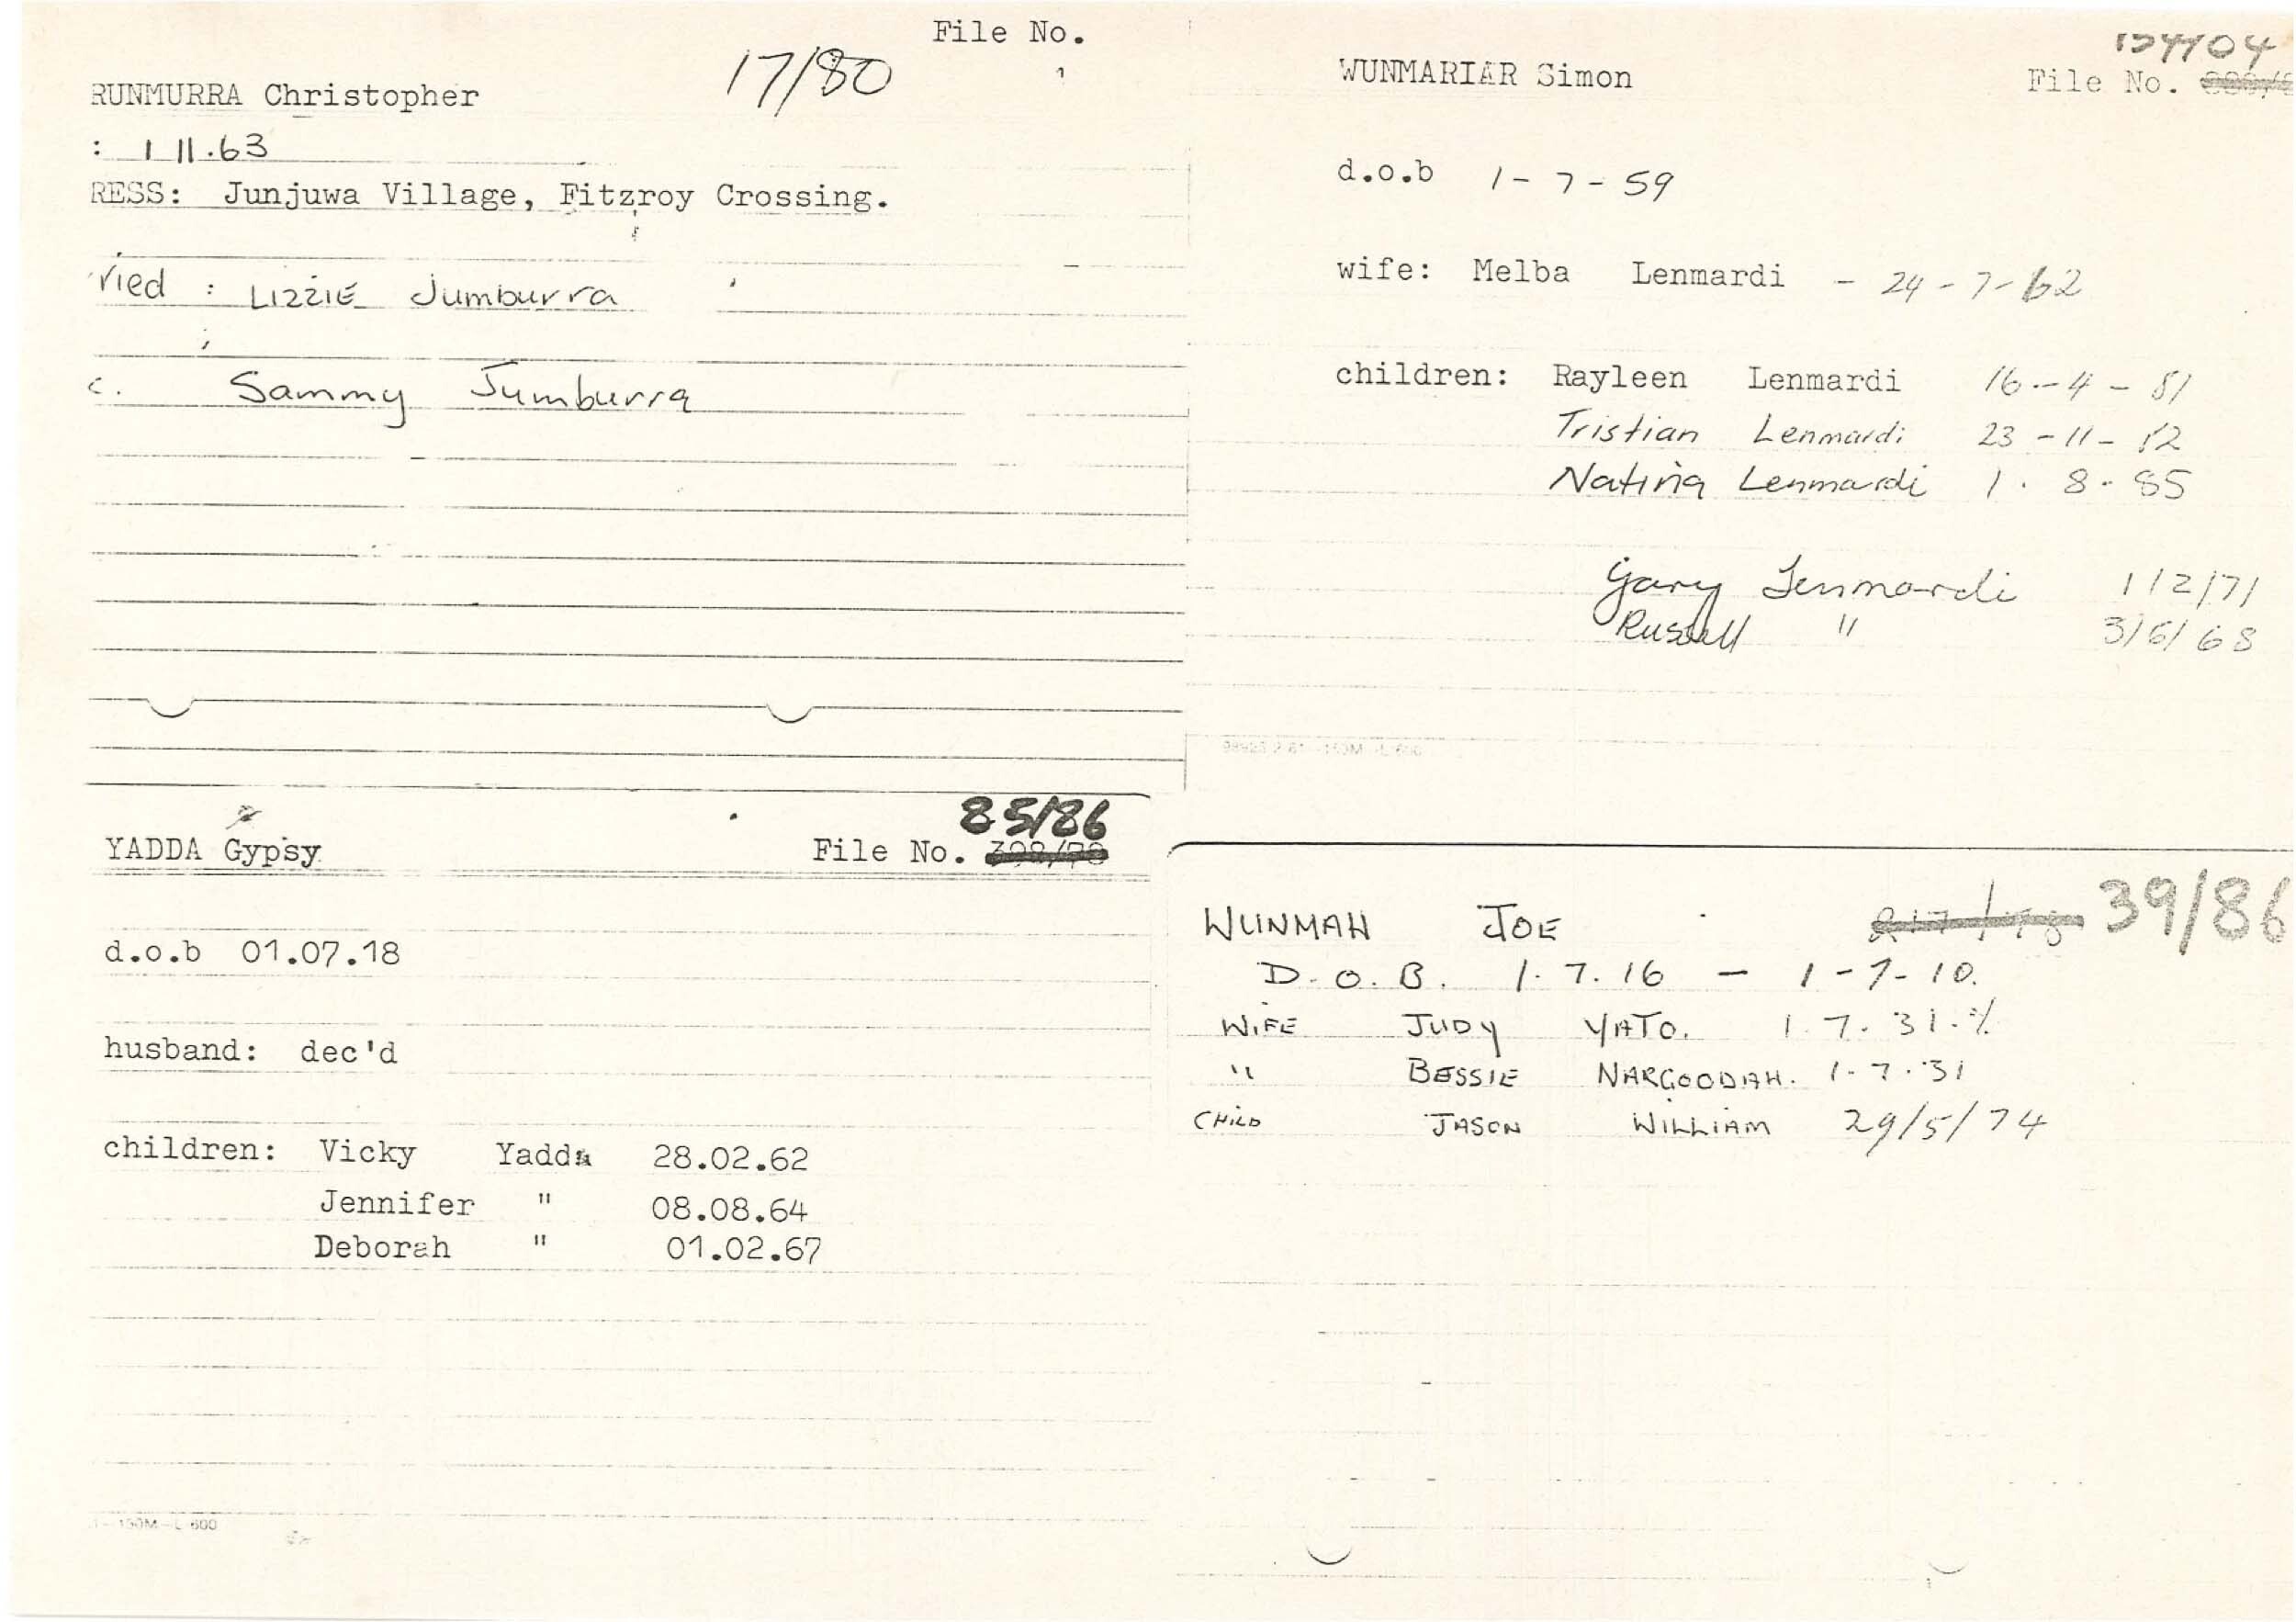 File No.
17/80
RUNMURRA Christopher
: 1 11.63
RESS: Junjuwa Village, Fitzroy Crossing.
ried : LIZZIE Jumburra
c. Sammy Jumburra
File No.
WUNMARIAR Simon
d.o.b 1-7-59
wife: Melba Lenmardi - 24-7-62
children: Rayleen Lenmardi 16-4-81
Tristian Lenmardi 23-11-82
Natina Lenmardi 1.8.85
Gary Lenmardi 1/2/71
Russell " 3/6/68
85/86
YADDA Gypsy File No.
d.o.b 01.07.18
husband: dec'd
children: Vicky Yadda 28.02.62
Jennifer " 08.08.64
Deborah " 01.02.67
150M-L-600
WUNMAH JOE 39/86
D.O.B. 1.7.16 - 1-7-10.
WIFE JUDY YATO. 1.7.31.
" BESSIE NARGOODAH. 1.7.31
CHILD JASON WILLIAM 29/5/74